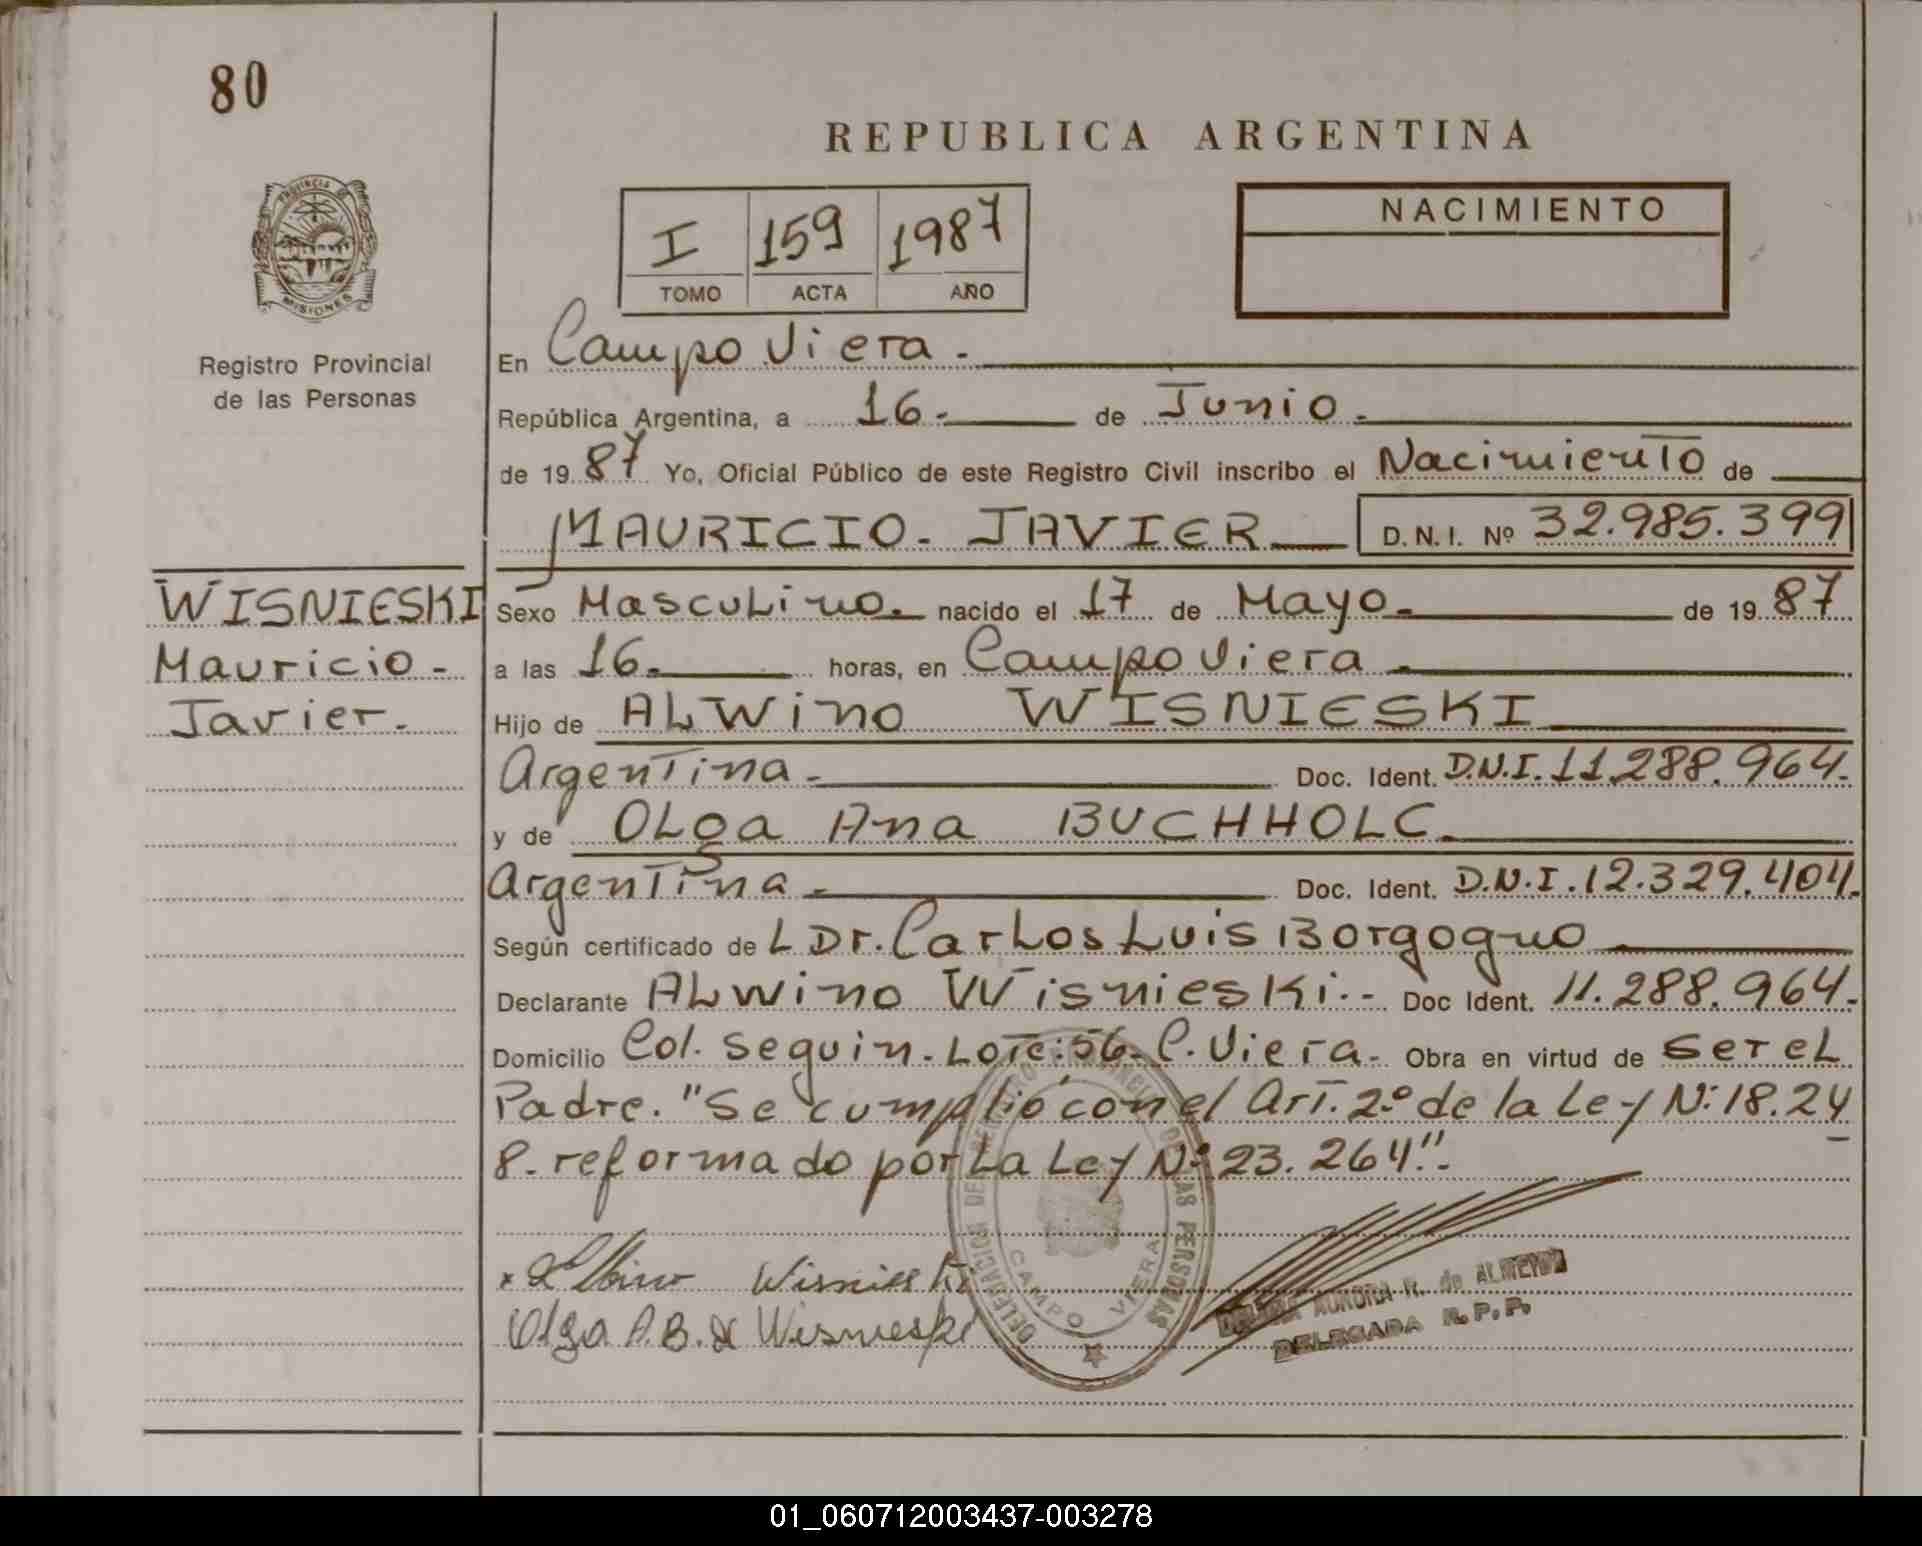 80
REPUBLICA ARGENTINA
PROVINCIA DE
MISIONES
Registro Provincial
de las Personas
I 159 1987
TOMO ACTA AÑO
NACIMIENTO
En Campo Viera.
República Argentina, a 16. de Junio.
de 1987 Yo, Oficial Público de este Registro Civil inscribo el Nacimiento de
MAURICIO. JAVIER D.N.I. Nº 32.985.399
WISNIESKI
Mauricio
Javier.
Sexo Masculino. nacido el 17 de Mayo. de 1987
a las 16. horas, en Campo Viera.
Hijo de ALWino WISNIESKI
Argentina. Doc. Ident. D.N.I. 11.288.964.
y de OLga Ana BUCHHOLC.
Argentina. Doc. Ident. D.N.I. 12.329.404.
Según certificado de L Dr. Carlos Luis Borgogno
Declarante ALwino Wisnieski.- Doc Ident. 11.288.964.
Domicilio Col. Seguin. Lote:56. C. Viera. Obra en virtud de ser el
Padre. "Se cumplió con el Art. 2º de la Ley Nº 18.24
8. reformado por La Ley Nº 23.264".
Wisnieski
Olga A.B. de Wisnieski
DELEGACION DEL REGISTRO PROVINCIAL DE LAS PERSONAS
CAMPO VIERA
AURORA R. de ALMEIDA
DELEGADA R.P.P.
01_060712003437-003278